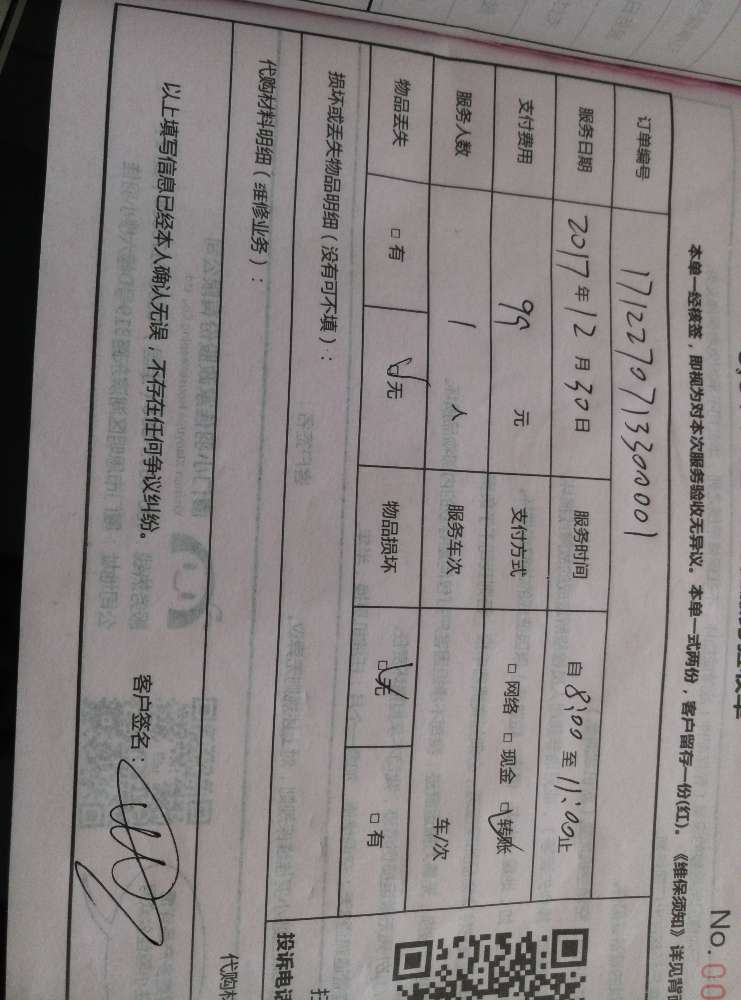 No. 00
本单一经核签，即视为对本次服务验收无异议。本单一式两份，客户留存一份(红)。《维保须知》详见背
订单编号 171227071330001
服务日期 2017年12月30日 服务时间 自8:00至11:00止
支付费用 99元 支付方式 □网络 □现金 ☑转账
服务人数 1人 服务车次 车/次
物品丢失 □有 ☑无 物品损坏 ☑无 □有
损坏或丢失物品明细（没有可不填）：
代购材料明细（维修业务）：
投诉电话
代购材
以上填写信息已经本人确认无误，不存在任何争议纠纷。 客户签名：